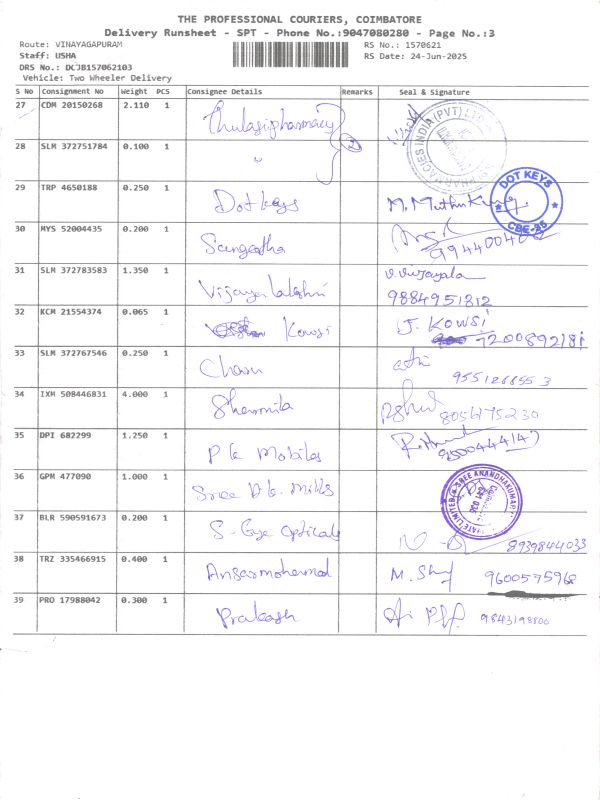 THE PROFESSIONAL COURIERS, COIMBATORE
Delivery Runsheet - SPT - Phone No.:9047080280 - Page No.:3
Route: VINAYAGAPURAM RS No.: 1570621
Staff: USHA RS Date: 24-Jun-2025
DRS No.: DCJB157062103
Vehicle: Two Wheeler Delivery
S No Consignment No Weight PCS Consignee Details Remarks Seal & Signature
27 CDM 20150268 2.110 1 Thulasipharmacy 2
28 SLM 372751784 0.100 1 "
29 TRP 4650188 0.250 1 Dot keys M. Muthu Kumar DOT KEYS CBE-35
30 MYS 52004435 0.200 1 Sangeetha
31 SLM 372783583 1.350 1 Vijayalakshmi V. Vijayala
9884951812
32 KCM 21554374 0.065 1 Kowsi J. KOWSI
7200892181
33 SLM 372767546 0.250 1 Charu
34 IXM 508446831 4.000 1 Sharmila 8056175230
35 DPI 682299 1.250 1 P K Mobiles 9500444147
36 GPM 477090 1.000 1 Sree Mills
37 BLR 590591673 0.200 1 S-Eye Opticals 8939844033
38 TRZ 335466915 0.400 1 Ansarmohamad 9600575968
39 PRO 17988042 0.300 1 Prakash 9843198800